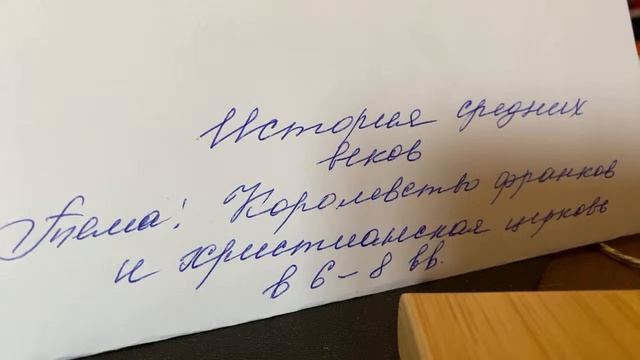 История средних
веков
Тема: Королевство франков
и христианская церковь
в 6-8 вв.